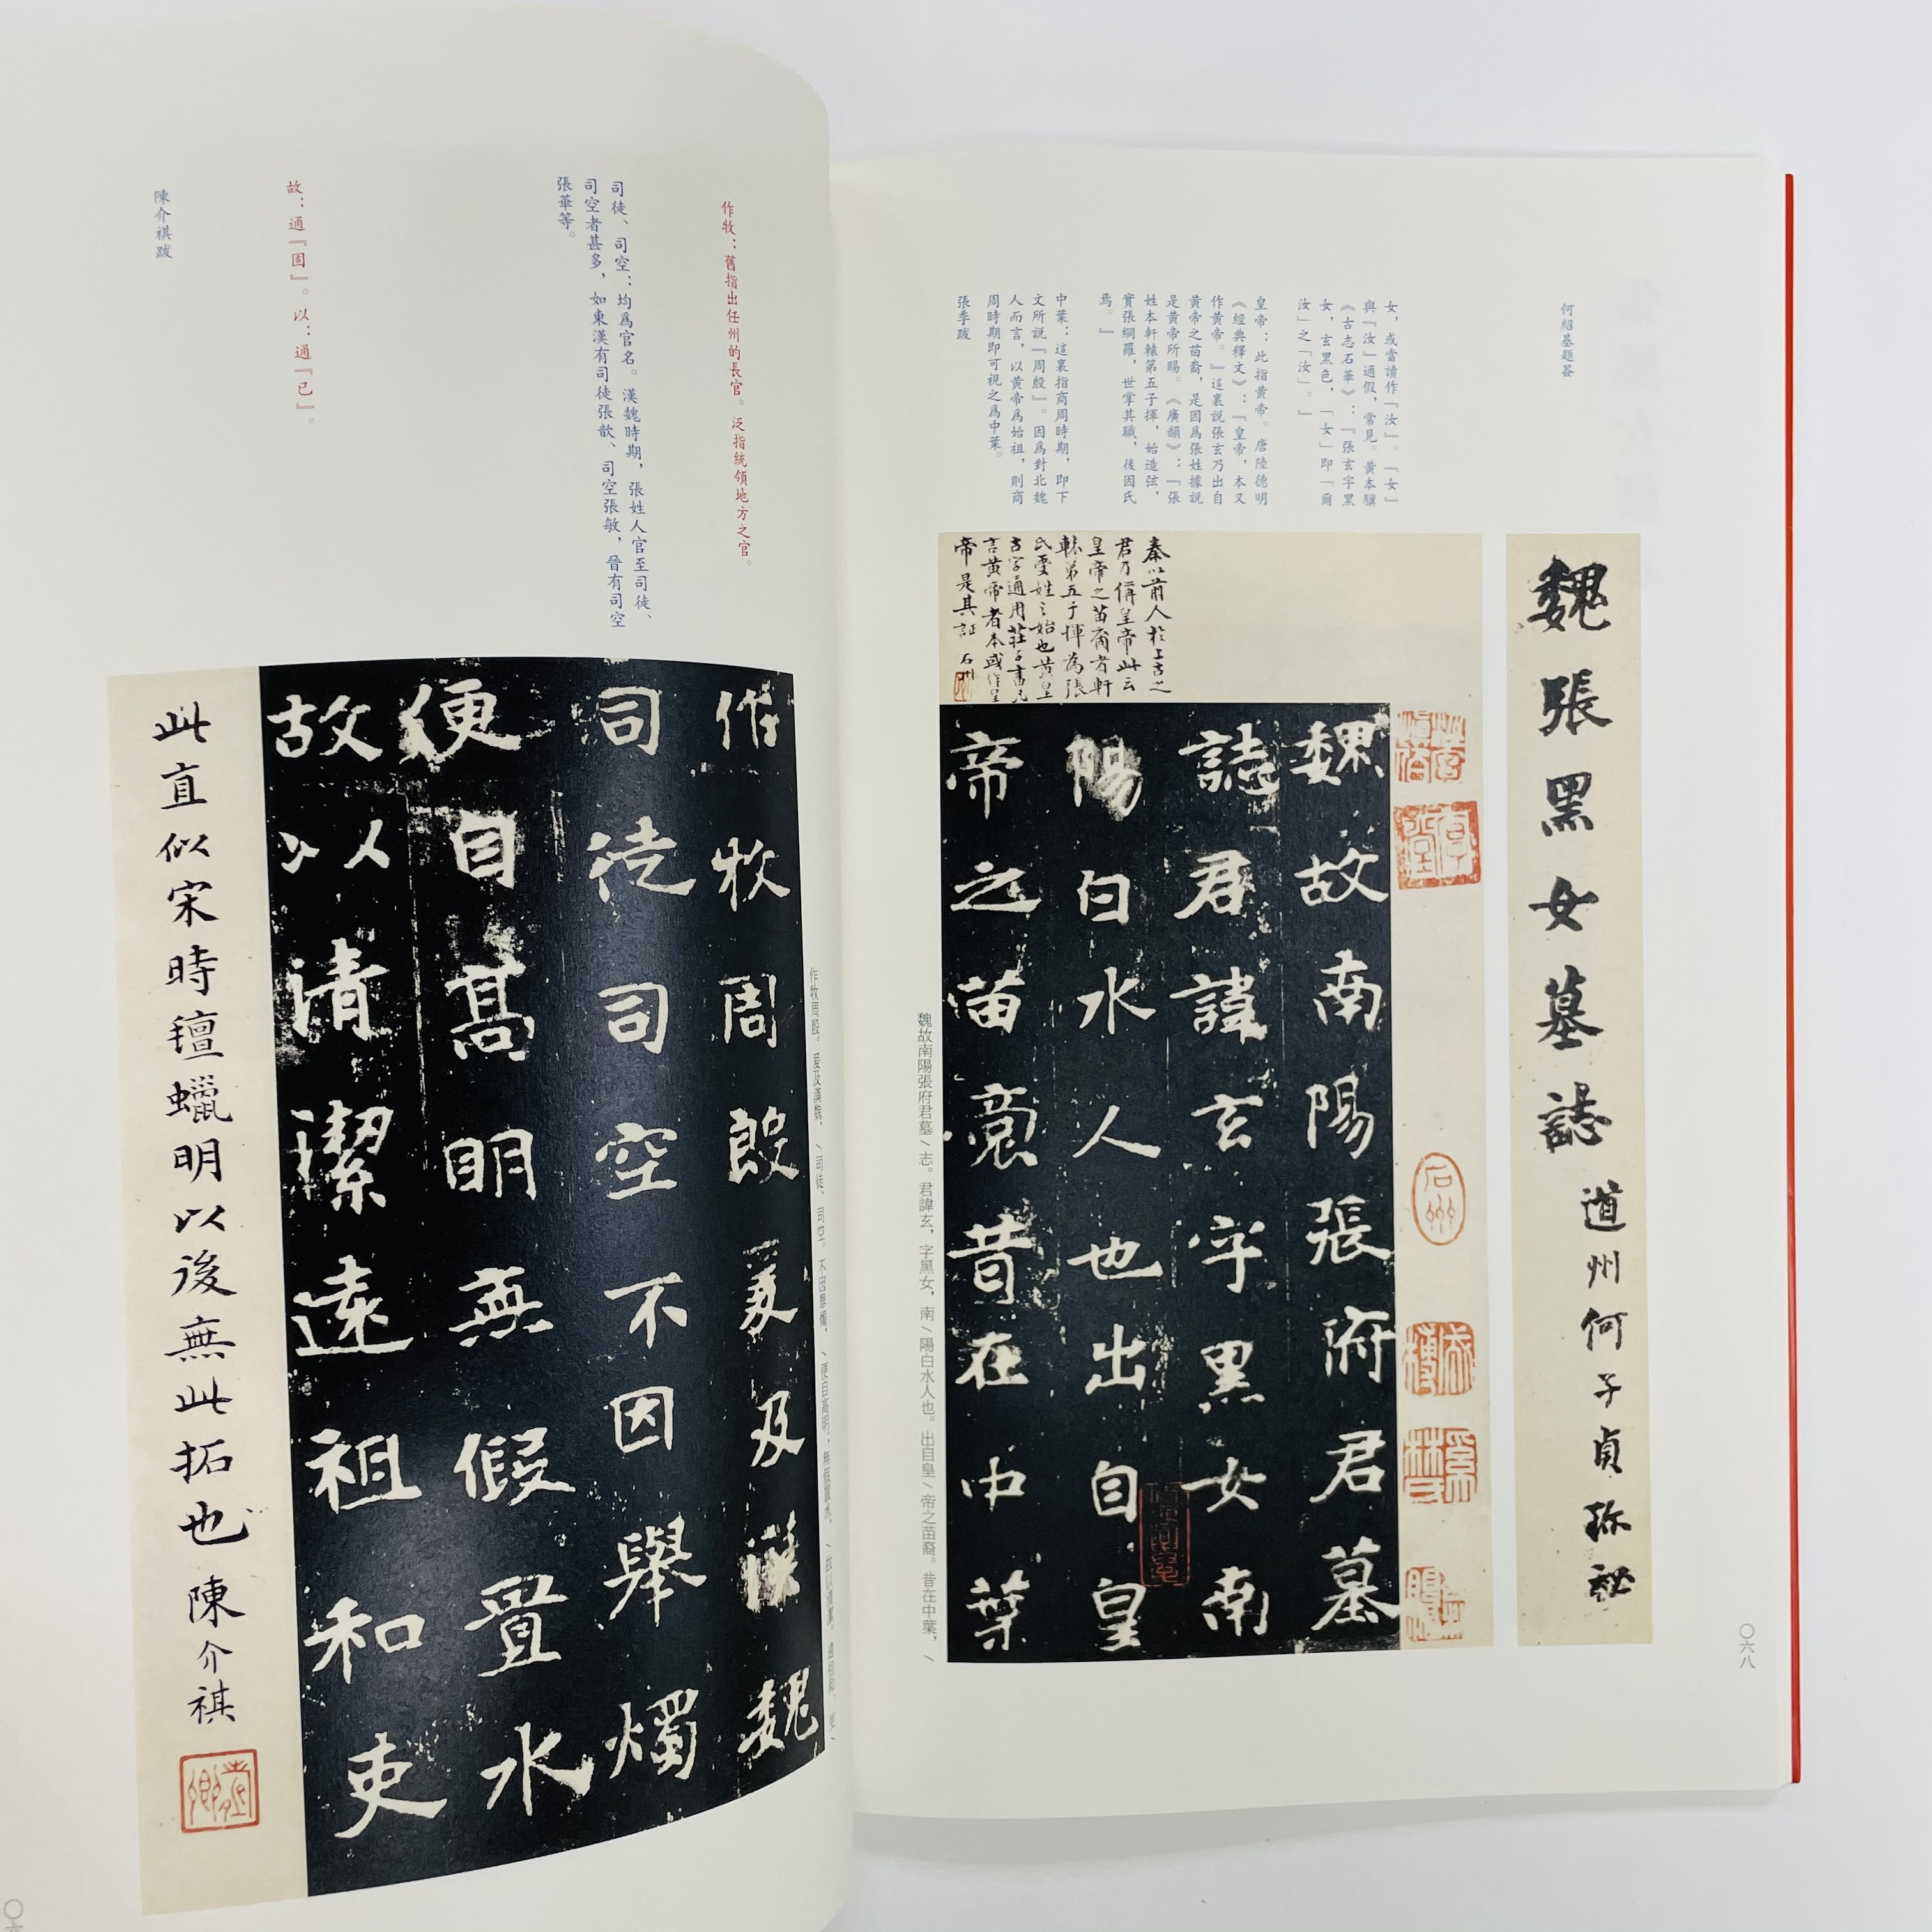 何紹基題簽
女，或當讀作『汝』。『女』
與『汝』通假，常見。黄本驥
《古志石華》：『張玄字黑
女，玄黑色，「女」即「爾
汝」之「汝」。』
皇帝：此指黄帝。唐陸德明
《經典釋文》：『皇帝，本又
作黄帝。』這裏説張玄乃出自
黄帝之苗裔，是因爲張姓據説
是黄帝所賜。《廣韻》：『張
姓本軒轅第五子揮，始造弦，
實張網羅，世掌其職，後因氏
焉。』
中葉：這裏指商周時期，即下
文所説『周殷』。因爲對北魏
人而言，以黄帝爲始祖，則商
周時期即可視之爲中葉。
張季跋
魏張黑女墓誌 道州何子貞珎祕
石州
秦以前人於上古之
君乃偁皇帝此云
皇帝之苗裔者軒
轅第五子揮為張
氏受姓之始也黄皇
古字通用莊子書凡
言黄帝者本或作皇
帝是其証 石州
魏故南陽張府君墓
誌君諱玄字黑女南
陽白水人也出自皇
帝之苗裔昔在中葉
魏故南陽張府君墓/志。君諱玄，字黑女，南/陽白水人也。出自皇/帝之苗裔。昔在中葉，/
〇六八
作牧：舊指出任州的長官。泛指統領地方之官。
司徒、司空：均爲官名。漢魏時期，張姓人官至司徒、
司空者甚多，如東漢有司徒張歆、司空張敏，晉有司空
張華等。
故：通『固』。以：通『已』。
陳介祺跋
作牧周殷爰及漢魏
司徒司空不因舉燭
便自高明無假置水
故以清潔遠祖和吏
作牧周殷。爰及漢魏，/司徒、司空。不因舉燭，/便自高明；無假置水，/故以清潔。遠祖和，吏/
此直似宋時氊蠟明以後無此拓也 陳介祺